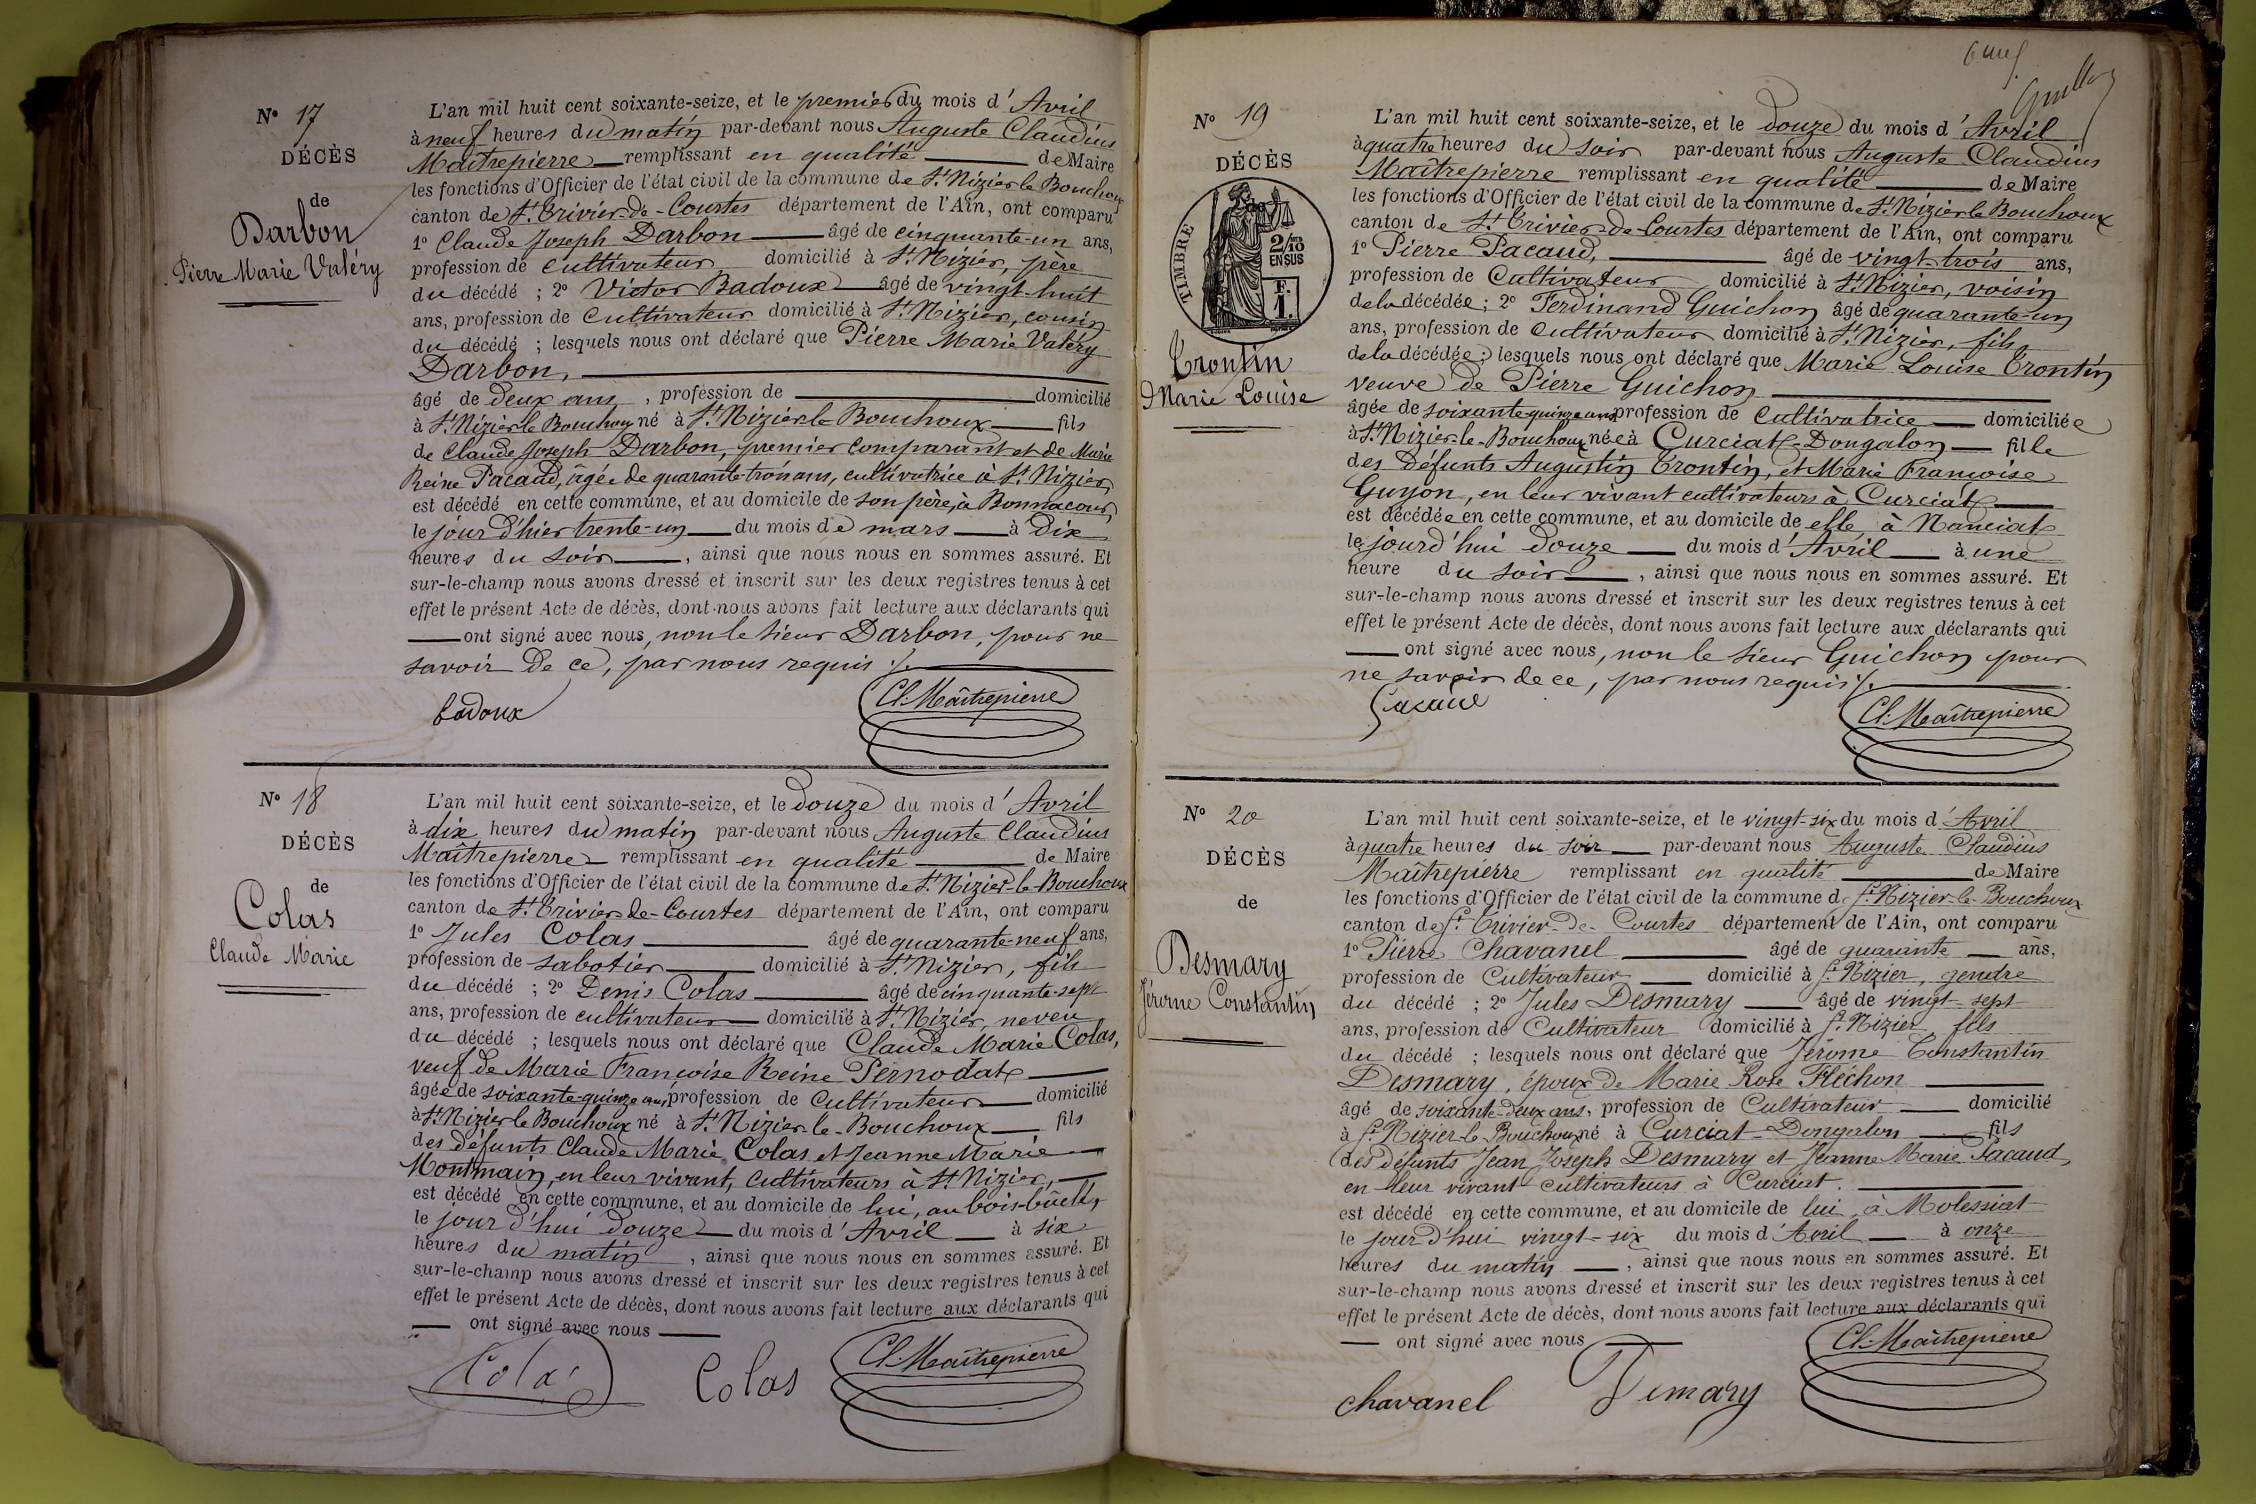 N° 17
DÉCÈS
de
Darbon
Pierre Marie Valéry
L'an mil huit cent soixante-seize, et le premier du mois d'Avril
à neuf heures du matin par-devant nous Auguste Claudius
Maîtrepierre remplissant en qualité de Maire
les fonctions d'Officier de l'état civil de la commune de St Nizier le Bouchoux
canton de St Trivier-de-Courtes département de l'Ain, ont comparu
1° Claude Joseph Darbon âgé de cinquante-un ans,
profession de cultivateur domicilié à St Nizier, père
du décédé ; 2° Victor Badoux âgé de vingt-huit
ans, profession de cultivateur domicilié à St Nizier, cousin
du décédé ; lesquels nous ont déclaré que Pierre Marie Valéry
Darbon,
âgé de deux ans, profession de domicilié
à St Nizier le Bouchoux né à St Nizier-le Bouchoux fils
de Claude Joseph Darbon, premier comparant et de Marie
Reine Pacaud, âgée de quarante-trois ans, cultivatrice à St Nizier,
est décédé en cette commune, et au domicile de son père, à Bonnacour,
le jour d'hier trente-un du mois de mars à dix
heures du soir, ainsi que nous nous en sommes assuré. Et
sur-le-champ nous avons dressé et inscrit sur les deux registres tenus à cet
effet le présent Acte de décès, dont nous avons fait lecture aux déclarants qui
ont signé avec nous, non le sieur Darbon, pour ne
savoir de ce, par nous requis ./.
badoux
Cl. Maîtrepierre
N° 18
DÉCÈS
de
Colas
Claude Marie
L'an mil huit cent soixante-seize, et le douze du mois d'Avril
à dix heures du matin par-devant nous Auguste Claudius
Maîtrepierre remplissant en qualité de Maire
les fonctions d'Officier de l'état civil de la commune de St Nizier-le-Bouchoux
canton de St Trivier-de-Courtes département de l'Ain, ont comparu
1° Jules Colas âgé de quarante-neuf ans,
profession de sabotier domicilié à St Nizier, fils
du décédé ; 2° Denis Colas âgé de cinquante-sept
ans, profession de cultivateur domicilié à St Nizier, neveu
du décédé ; lesquels nous ont déclaré que Claude Marie Colas,
veuf de Marie Françoise Reine Pernodat
âgée de soixante-quinze ans, profession de cultivateur domicilié
à St Nizier le Bouchoux né à St Nizier-le-Bouchoux fils
des défunts Claude Marie Colas et Jeanne Marie
Montmain, en leur vivant, cultivateurs à St Nizier,
est décédé en cette commune, et au domicile de lui, au bois
le jour d'hui douze du mois d'Avril à six
heures du matin, ainsi que nous nous en sommes assuré. Et
sur-le-champ nous avons dressé et inscrit sur les deux registres tenus à cet
effet le présent Acte de décès, dont nous avons fait lecture aux déclarants qui
ont signé avec nous
Colas
Colas
Cl. Maîtrepierre
N° 19
DÉCÈS
TIMBRE
2/10 EN SUS
F. 1.
Trontin
Marie Louise
L'an mil huit cent soixante-seize, et le douze du mois d'Avril
à quatre heures du soir par-devant nous Auguste Claudius
Maîtrepierre remplissant en qualité de Maire
les fonctions d'Officier de l'état civil de la commune de St Nizier le Bouchoux
canton de St Trivier-de-Courtes département de l'Ain, ont comparu
1° Pierre Pacaud, âgé de vingt-trois ans,
profession de cultivateur domicilié à St Nizier, voisin
de la décédée ; 2° Ferdinand Guichon âgé de quarante-un
ans, profession de cultivateur domicilié à St Nizier, fils
de la décédée ; lesquels nous ont déclaré que Marie Louise Trontin
veuve de Pierre Guichon
âgée de soixante-quinze ans profession de cultivatrice domiciliée
à St Nizier-le-Bouchoux née à Curciat-Dongalon fille
des défunts Augustin Trontin, et Marie Françoise
Guyon, en leur vivant cultivateurs à Curciat
est décédée en cette commune, et au domicile de elle, à Nanciat
le jourd'hui douze du mois d'Avril à une
heure du soir, ainsi que nous nous en sommes assuré. Et
sur-le-champ nous avons dressé et inscrit sur les deux registres tenus à cet
effet le présent Acte de décès, dont nous avons fait lecture aux déclarants qui
ont signé avec nous, non le sieur Guichon pour
ne savoir de ce, par nous requis ./.
Pacaud
Cl. Maîtrepierre
N° 20
DÉCÈS
de
Desmary
Jérome Constantin
L'an mil huit cent soixante-seize, et le vingt-six du mois d'Avril
à quatre heures du soir par-devant nous Auguste Claudius
Maîtrepierre remplissant en qualité de Maire
les fonctions d'Officier de l'état civil de la commune de St Nizier-le-Bouchoux
canton de St Trivier-de-Courtes département de l'Ain, ont comparu
1° Pierre Chavanel âgé de quarante ans,
profession de Cultivateur domicilié à St Nizier, gendre
du décédé ; 2° Jules Desmary âgé de vingt-sept
ans, profession de Cultivateur domicilié à St Nizier fils
du décédé ; lesquels nous ont déclaré que Jérome Constantin
Desmary, époux de Marie Rose Fléchon
âgé de soixante-deux ans, profession de Cultivateur domicilié
à St Nizier-le-Bouchoux né à Curciat-Dongalon fils
des défunts Jean Joseph Desmary et Jeanne Marie Pacaud,
en leur vivant cultivateurs à Curciat.
est décédé en cette commune, et au domicile de lui, à Molessiat
le jour d'hui vingt-six du mois d'Avril à onze
heures du matin, ainsi que nous nous en sommes assuré. Et
sur-le-champ nous avons dressé et inscrit sur les deux registres tenus à cet
effet le présent Acte de décès, dont nous avons fait lecture aux déclarants qui
ont signé avec nous
chavanel
Demary
Cl. Maîtrepierre